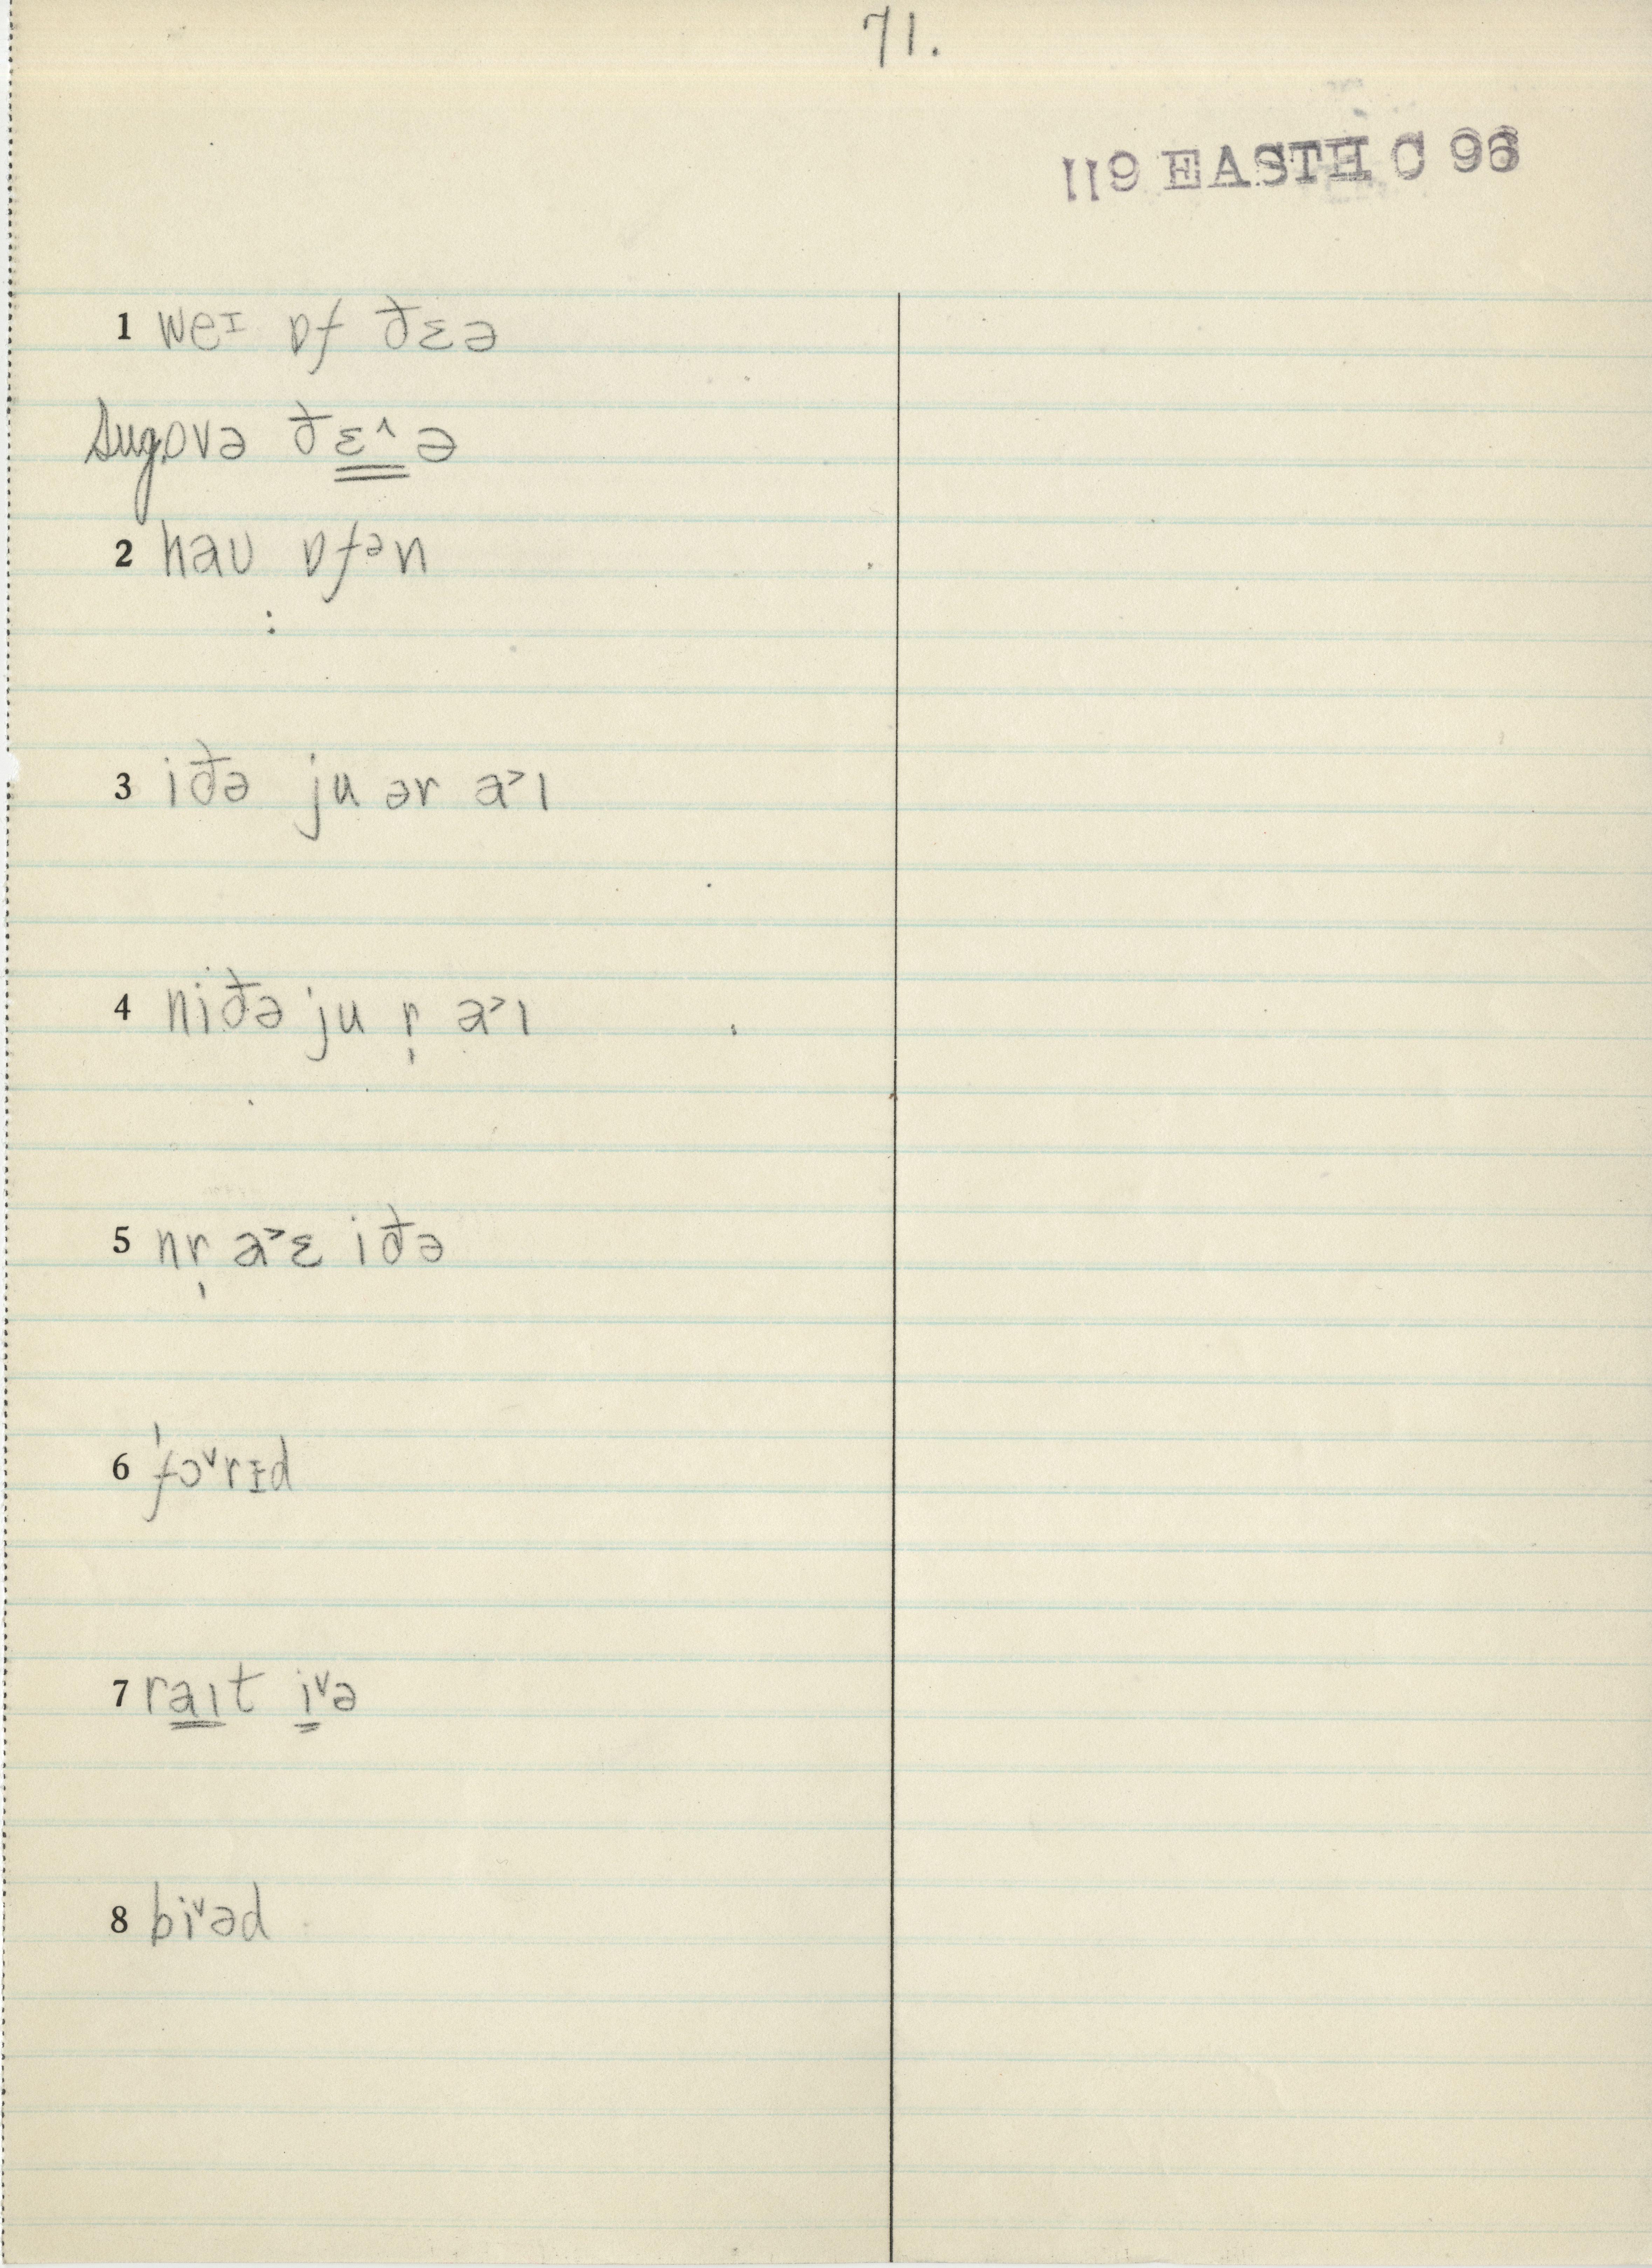 71.
119 EASTH C 96
1 weɪ ɒf ðɛə
sug. ovə ðɛ^ə
2 haʊ ɒfən
:
3 iðə ju ər a˃ɪ
4 niðə ju r̩ a˃ɪ
5 nr̩ a˃ɛ iðə
6 ˈfɔ˅rɪd
7 raɪt i˅ə
8 bi˅əd